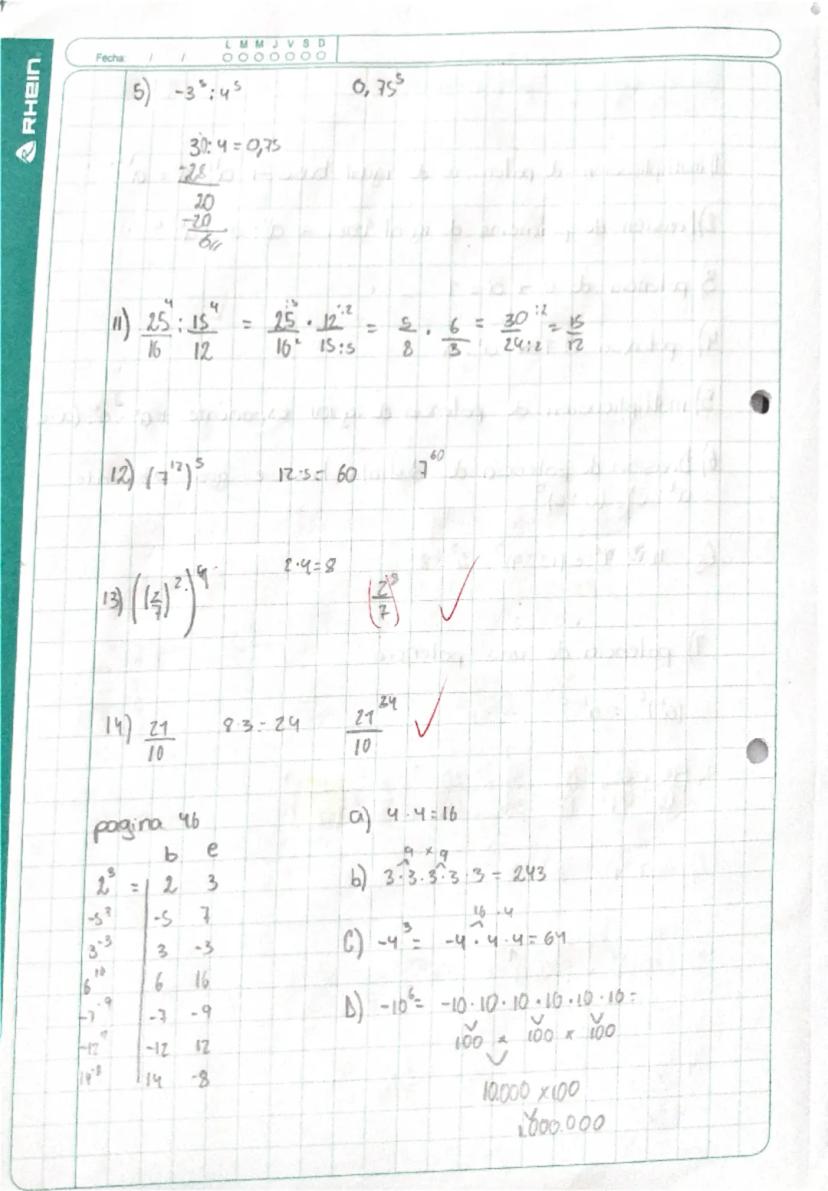 RHEIN
Fecha: / /
L M M J V S D
5) -3⁵ : 4⁵ 0,75⁵
30 : 4 = 0,75
-28
20
-20
0//
11) 25⁴/16 : 15⁴/12 = 25:5/16:2 · 12:2/15:5 = 5/8 · 6/3 = 30:2/24:2 = 15/12
12) (7¹²)⁵ 12·5 = 60 7⁶⁰
13) ((2/7)²)⁴ 2·4=8 (2/7)⁸ ✓
14) 21/10 8·3 = 24 21²⁴/10 ✓
pagina 46
b e
2³ = 2 3
-5⁷ -5 7
3⁻³ 3 -3
6¹⁶ 6 16
-7⁻⁹ -7 -9
-12 12
14⁻⁸ 14 -8
a) 4·4=16
9 × 9
b) 3·3·3·3·3 = 243
16 · 4
C) -4³ = -4·4·4 = 64
D) -10⁶ = -10·10·10·10·10·10 =
100 × 100 × 100
10.000 × 100
1.000.000